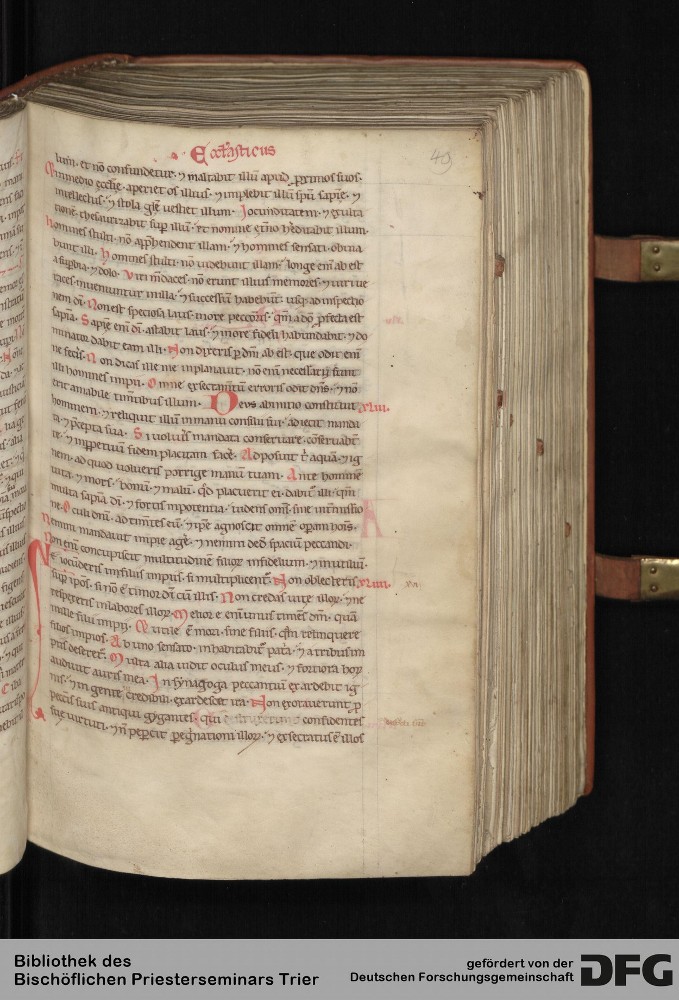 Eccl'asticus
49
lum · et nō confundetur · ⁊ exaltabit illū apud ꝓximos suos ·
In medio eccl'ie · aperiet os illius · ⁊ implebit illū spū sapīe · ⁊
intellectus · ⁊ stola gl'e uestiet illum · Iocunditatem · ⁊ exulta
tionē · thesaurizabit sup illū · et nomine et'no h'editabit illum ·
homines stulti · nō app̄hendent illam · ⁊ homines sensati · obuia
bunt illi · Homines stulti · nō uidebunt illam · longe enī ab est
a suꝑbia · ⁊ dolo · Viri mdaces · nō erunt illius memores · ⁊ uiri ue
races · inuenientur in illa · ⁊ successū habebunt · usq; ad inspectio
nem dī · Non est speciosa laus · in ore peccoris · qm̄ a dō ꝓfecta est
sapīa · Sapīe enī dī · astabit laus · ⁊ in ore fideli habundabit · ⁊ do
minator dabit eam illi · Non dixeris ꝑ dm̄ ab est · que odit enī
ne fec'is · Non dicas ille me inplanauit · nō enī necessarij sunt
illi homines impii · Omne exsecramtū erroris odit dn̄s · ⁊ nō
erit amabile timtibus illum · Deus ab initio constituit xlii.
hominem · ⁊ reliquit illum in manu consilii sui · adiecit manda
ta · ⁊ p̄cepta sua · Si uolu'is mandata conseruare · cōseruabt'
te · ⁊ in ꝑpetuū fidem placitam fac'e · Adposuit t' aquā · ⁊ ig
nem · ad quod uolueris porrige manū tuam · Ante hominē
uita · ⁊ mors · bonū · ⁊ malū · qđ placuerit ei · dabit' illi · qm̄
multa sapīa dī · ⁊ fortis in potentia · uidens om̄s · sine int'missio
ne · Oculi dn̄i · ad timtes eū · ⁊ ip̄e agnoscit omnē op̄am hois ·
Nemini mandauit impie ag'e · ⁊ nemini dedit spacium peccandi ·
Non enī concupiscit multitudinē filior' infidelium · ⁊ inutiliū ·
Ne iocunderis in filiis impiis · si multiplicent' · Non oblecteris xliiii.
sup ip̄os · si nō ē timor dī cū illis · Non credas uite illor' · ⁊ ne
respexeris in labores illor' · Melior ē enī unus timēs dm̄ · quā
mille filii impij · Et utile ē mori · sine filiis · qm̄ relinquere
filios impios · Ab uno sensato · inhabitabit' patīa · ⁊ a tribus im
piis deseret' · Multa alia uidit oculus meus · ⁊ fortiora hor'
audiuit auris mea · In synagoga peccantiū exardebit ig
nis · ⁊ in gente credibili · exardescet ira · Non exorauerunt ꝑ
peccīs suis antiqui gygantes · qui confidentes
sue uirtuti · ⁊ nō peꝑcit ꝑeg'nationi illor' · ⁊ exsecratus ē illos
Bibliothek des
Bischöflichen Priesterseminars Trier
gefördert von der
Deutschen Forschungsgemeinschaft DFG